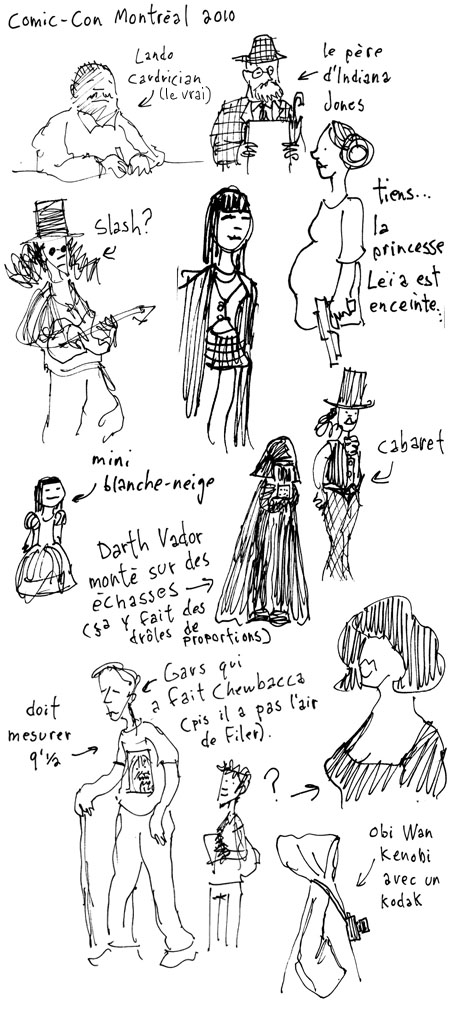 Comic-Con Montréal 2010
Lando
Cardrician
(le vrai)
le père
d'Indiana
Jones
Slash?
tiens...
la
princesse
Leïa est
enceinte.
cabaret
mini
blanche-neige
Darth Vador
monté sur des
échasses
(ça y fait des
drôles de
proportions)
Gars qui
a fait Chewbacca
(pis il a pas l'air
de Filer).
doit
mesurer
9'½
?
Obi Wan
Kenobi
avec un
kodak